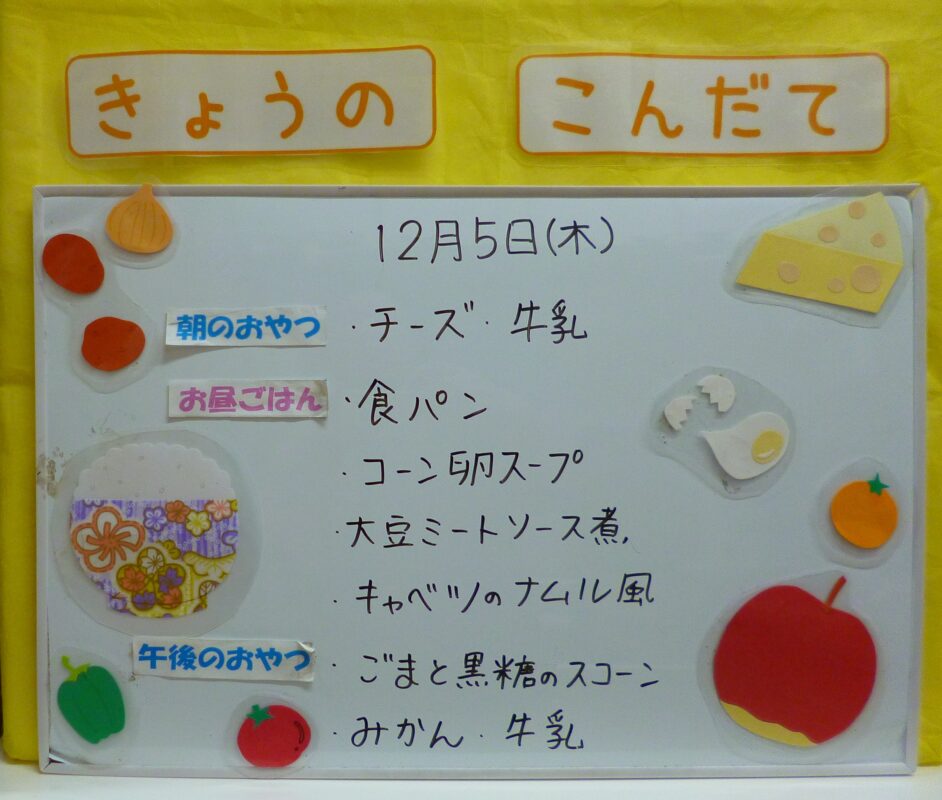 きょうの こんだて
12月5日(木)
朝のおやつ ・チーズ・牛乳
お昼ごはん ・食パン
・コーン卵スープ
・大豆ミートソース煮
・キャベツのナムル風
午後のおやつ ・ごまと黒糖のスコーン
・みかん・牛乳